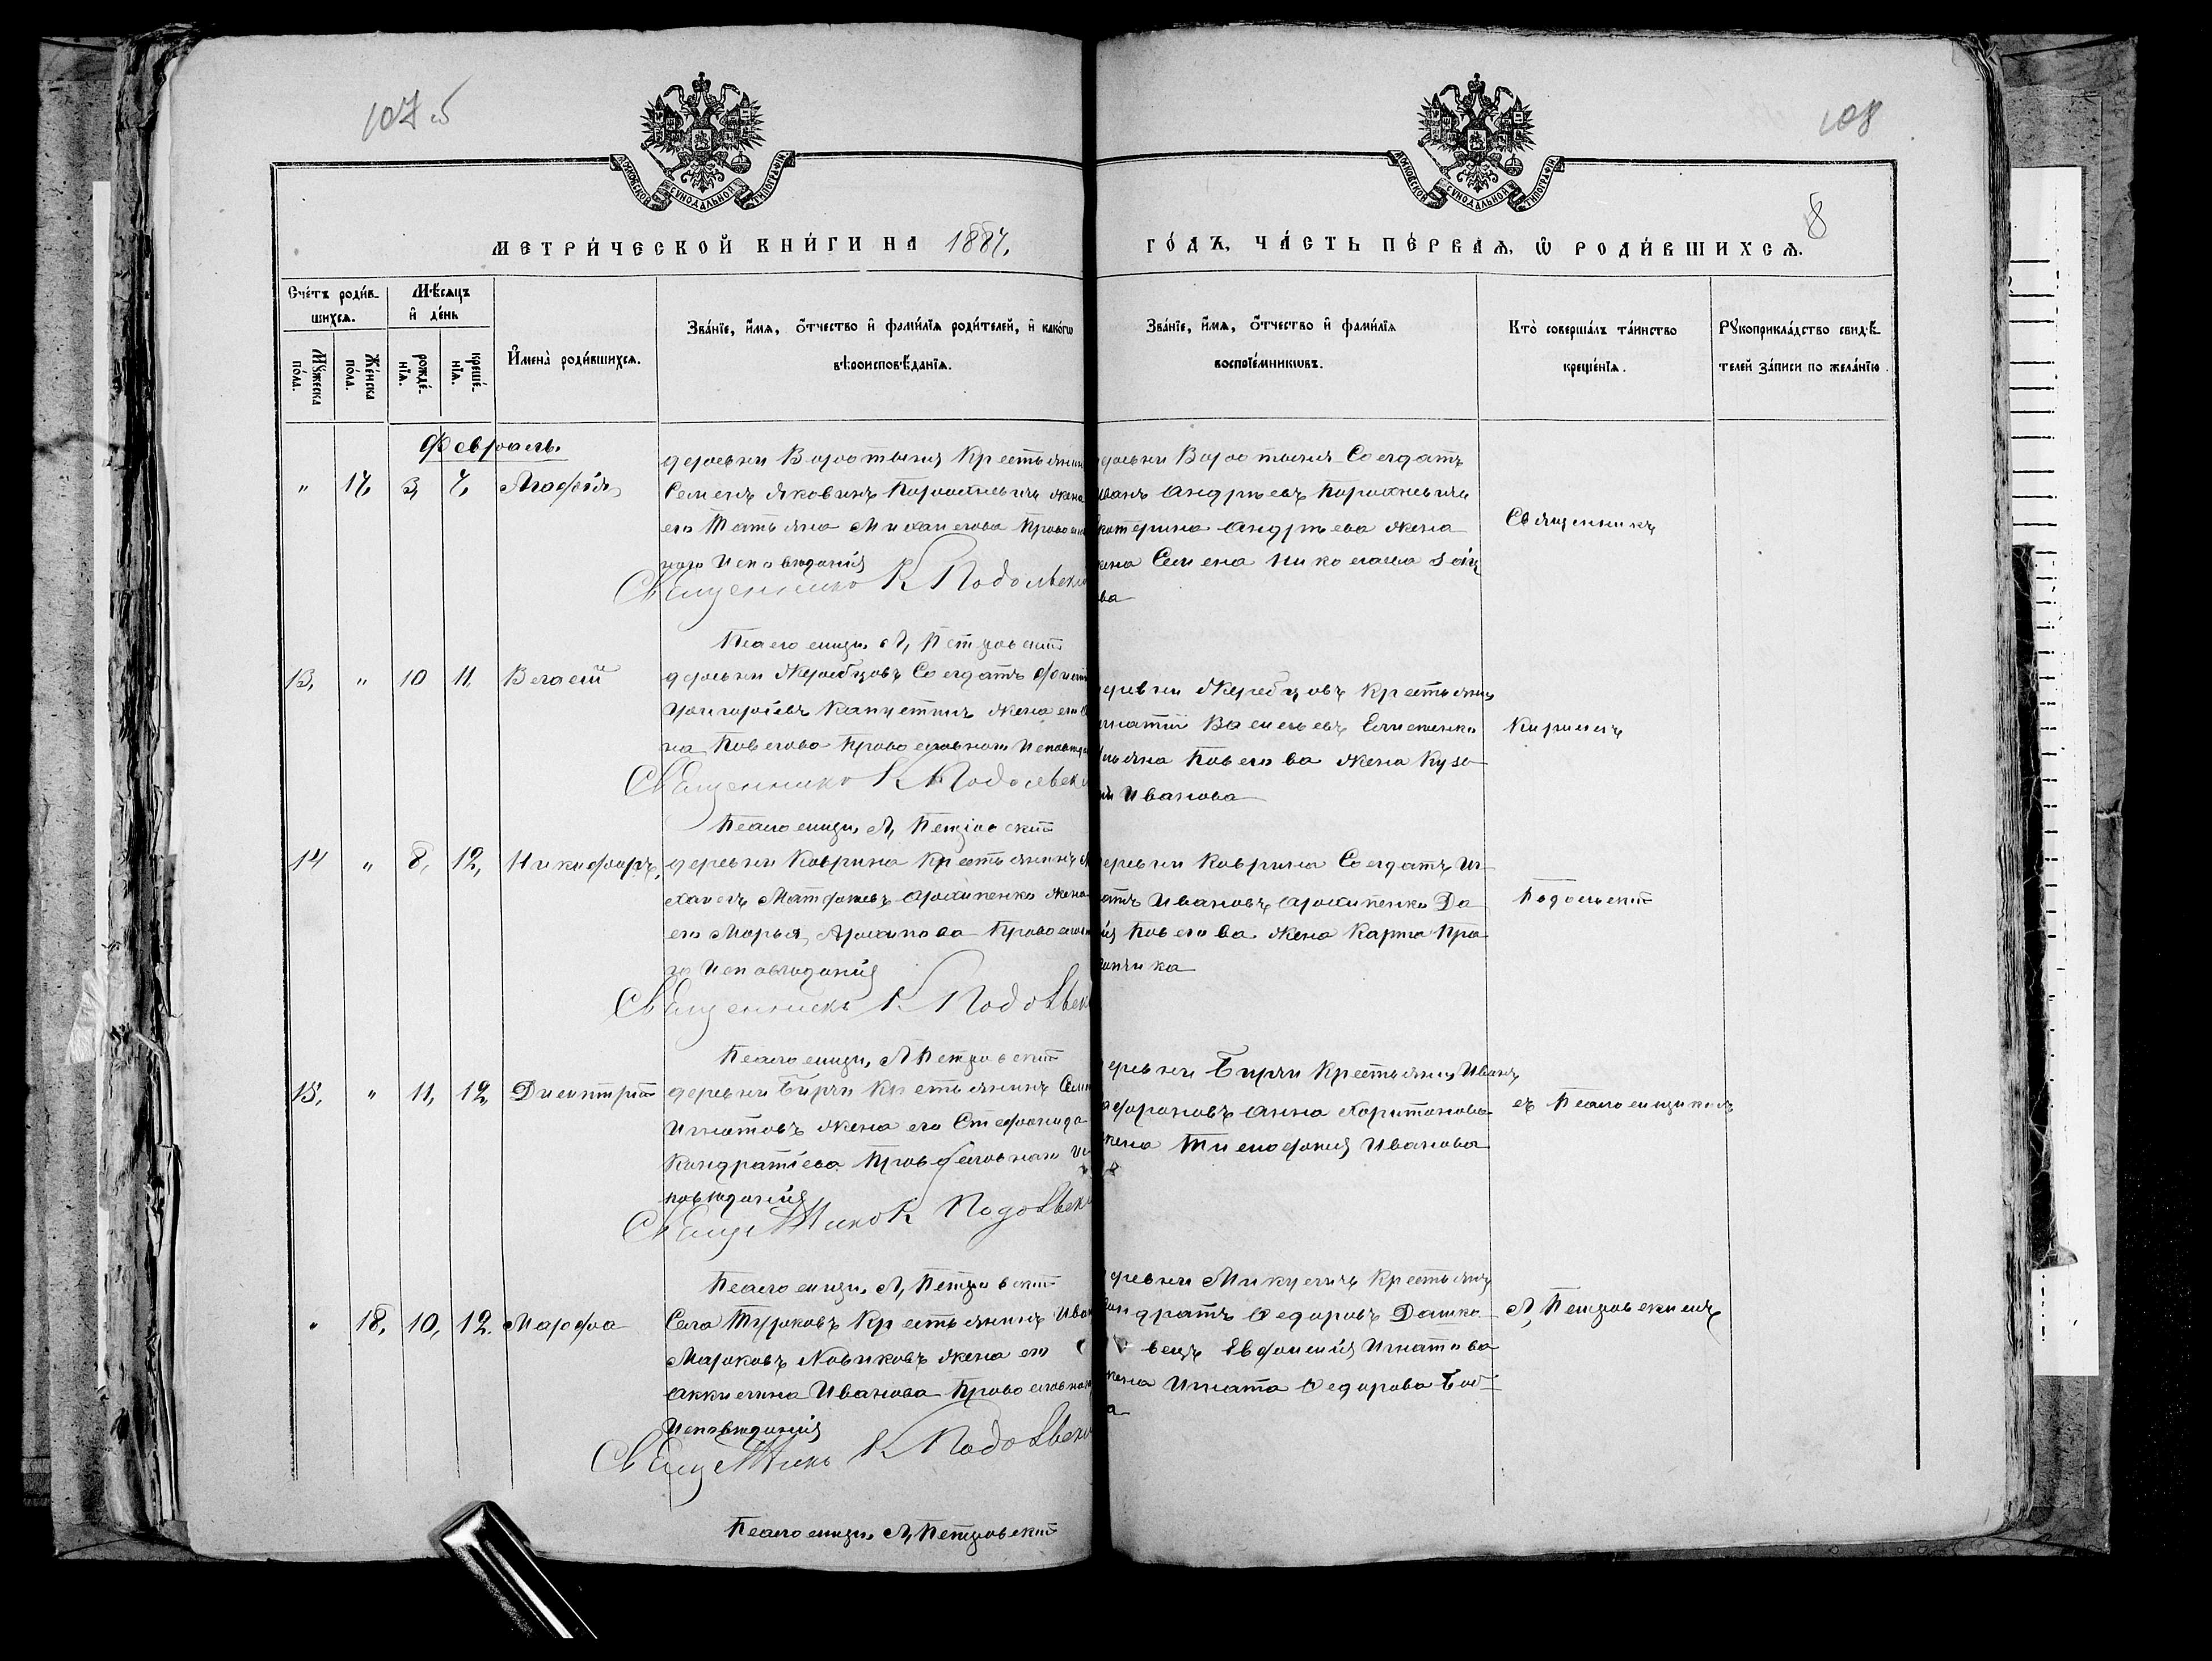 107 об
108
8
МОСКОВСКОЙ СѴНОДАЛЬНОЙ ТИПОГРАФІИ
МОСКОВСКОЙ СѴНОДАЛЬНОЙ ТИПОГРАФІИ
МЕТРИ́ЧЕСКОЙ КНИ́ГИ НА 1887,
ГО́ДЪ, ЧА́СТЬ ПЕ́РВАѦ, Ѡ РОДИ́ВШИХСѦ.
Сче́тъ роди́в-
шихсѧ.
Мѣ́сѧцъ
и҆ де́нь
Мꙋ́жеска по́ла.
Же́нска по́ла.
рожде́-нїѧ.
креще́-нїѧ.
И҆мена̀ роди́вшихсѧ.
Зва́нїе, и҆́мѧ, о҆́тчество и҆ фами́лїѧ роди́телей, и҆ како́гѡ
вѣроисповѣ́данїѧ.
Зва́нїе, и҆́мѧ, о҆́тчество и҆ фами́лїѧ
воспрїе́мникѡвъ.
Кто̀ соверша́лъ та́инство
креще́нїѧ.
Рꙋкоприкла́дство свидѣ́-
телей за́писи по жела́нїю.
Февраль.
деревни Воротыня Крестьянин
" 17, 3, 7, Агафія
Семенъ Яковинъ жена
его Татьяна Михаилова Право
наго Исповѣданія
Священникъ К Подольск
Псаломщ. Л, Петровскій
деревни Воротыня Солдатъ
Иванъ Андреевъ
Катерина Андреева жена
Семена Николаева
ва
Священникъ
13, " 10 11, Власій
деревни Жеребцовъ Солдатъ
Григоріевъ жена его
на Павлова Православнаго Исповѣд
Священникъ К Подольск
Псаломщ. Л, Петровскій
деревни Жеребцовъ Крестьянинъ
Игнатій Васильевъ
Павлова жена Кузь
Иванова
Кирилъ
14 " 8, 12, Никифоръ,
деревни Коврина Крестьянинъ Ми
хаилъ Матфеевъ Архипенко жена
его Марья Архипова Правосла
го Исповѣданія
Священникъ К Подольск
Псаломщ. Л Петровскій
деревни Коврина Солдатъ Иг
натъ Ивановъ Архипенко Да
Павлова жена Карпа Пра
Подольскій
15, " 11, 12, Димитрій
деревни Бирчи Крестьянинъ Семе
Игнатовъ жена его Стефанида
Кондратіева Православнаго Ис
повѣданія
Священникъ К Подольск
Псаломщ. Л, Петровскій
деревни Бирчи Крестьянинъ Иванъ
Сафроновъ Анна Харитонова
жена Тимофея Иванова
съ Псаломщикомъ
" 18, 10, 12. Марфа
Села Турковъ Крестьянинъ Иван
Марковъ Новиковъ жена его
Аккилина Иванова Православнаго
Исповѣданія
Священникъ К Подольск
Псаломщ. Л, Петровскій
деревни Микуличъ Крестьянинъ
Кондратъ Федоровъ Дашко
вецъ Евфимія Игнатова
жена Игната Федорова
Л, Петровскимъ